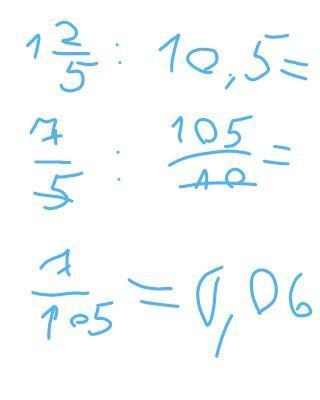 1 2/5 : 10,5=
7/5 : 105/10=
7/105 = 0,06